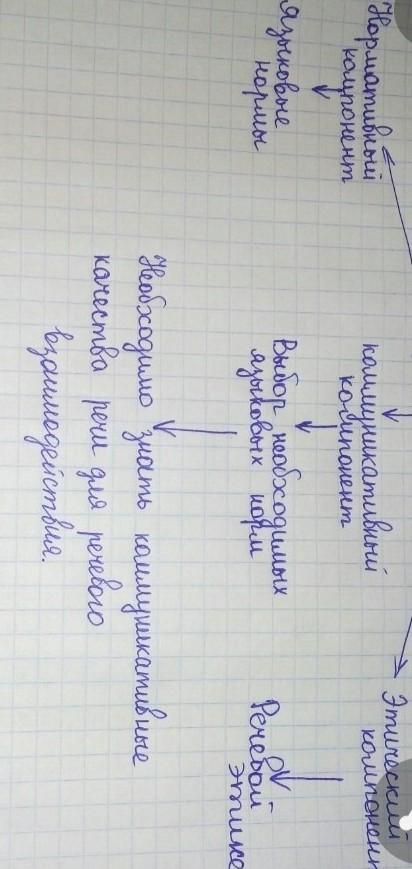 Нормативный
компонент
Языковые
нормы
коммуникативный
компонент
Выбор необходимых
языковых норм
Необходимо знать коммуникативные
качества речи для речевого
взаимодействия.
Этический
компонен
Речевой
этике